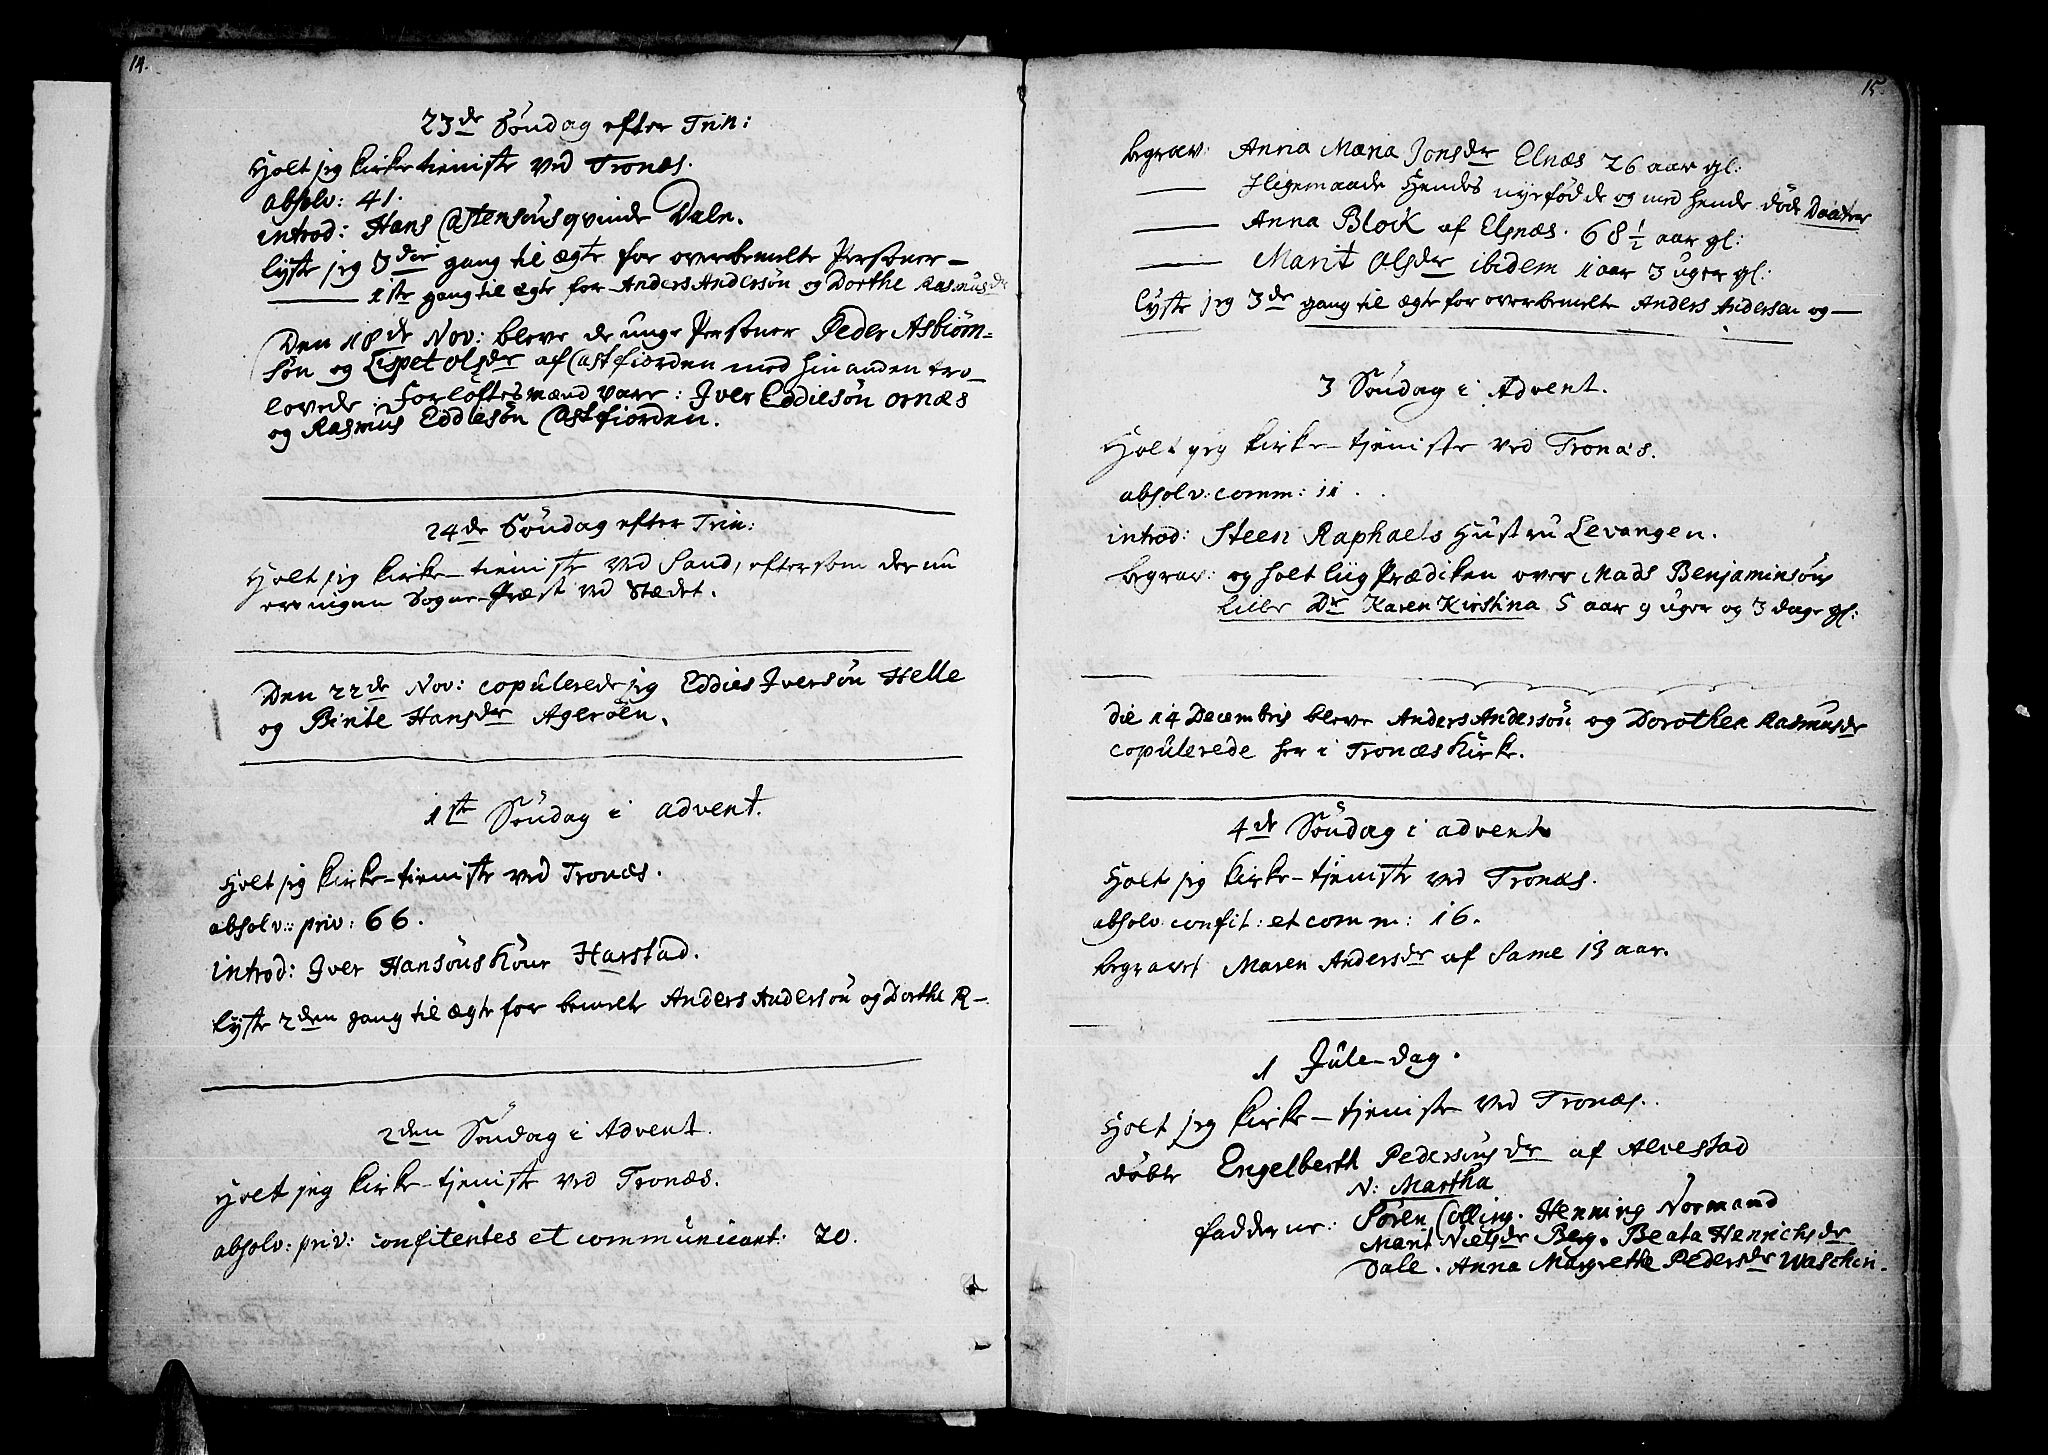 14.
23de Söndag efter Trin:
Holt jeg kirke tieniste ved Tronæs.
absolv: 41.
introd: Hans Ostensöns qvinde Dale.
lyste jeg 3die gang til ægte for overbemelte Personer —
—— 1ste gang til ægte for Anders Andersön og Dorthe Rasmusdr
Den 18de Nov: bleve de unge Personer Peder Asbiörn-
sön og Lispet Olsdr af Castfiorden med hin anden tro-
lovede: Forlöftesmænd vare: Iver Eddiesön ornæs
og Rasmus Eddiesön Castfiorden.
24de Söndag efter Trin:
Holt jeg kirke-tieniste ved Sand, eftersom der nu
er ingen Sogne-Præst ved Stædet.
Den 22de Nov: copulerede jeg Eddies Iversön Helle
og Binte Hansdr Ageröen.
1ste Söndag i advent.
Holt jeg kirke-tieniste ved Tronæs.
absolv: priv: 66.
introd: Iver Hansöns kone Harstad.
lyste 2den gang til ægte for bemelte Anders Andersön og Dorthe R—
2den Söndag i Advent.
Holt jeg kirke-tjeniste ved Tronæs.
absolv: priv: confitentes et communicant: 20.
15.
begrav: Anna Maria Jonsdr Elnæs 26 aar gl:
—— Iligemaade Hendes nyefödde og med hende döde Daatter
—— Anna Block af Elgnæs. 68 1/2 aar gl:
—— Marit Olsdr ibidem 1 aar 3 uger gl:
lyste jeg 3de gang til ægte for overbemelte Anders Andersen og —
3 Söndag i Advent.
Holt jeg kirke-tjeniste ved Tronæs.
absolv: comm: 11.
introd: Steen Raphaels Hustru Levangen.
begrav: og holt liig Prædiken over Mads Benjaminsöns
lille Dr Karen Kirstina 5 aar 9 uger og 3 dage gl:
die 14 Decembris bleve Anders Andersön og Dorothea Rasmusdr
copulerede her i Tronæs Kirke.
4de Söndag i advent
Holt jeg kirke-tjeniste ved Tronæs.
absolv: confit: et comm: 16.
begravet Maren Andersdr af Same 13 aar.
1 Jule-dag.
Holt jeg kirke-tjeniste ved Tronæs.
döbte Engelberth Pedersöns dr af Alvestad
N: Martha
fadderne: Sören Colling. Henning Normand
Marit Nielsdr Berg. Beata Henrichsdr
Dale. Anna Margrethe Pedersdr Waschin.